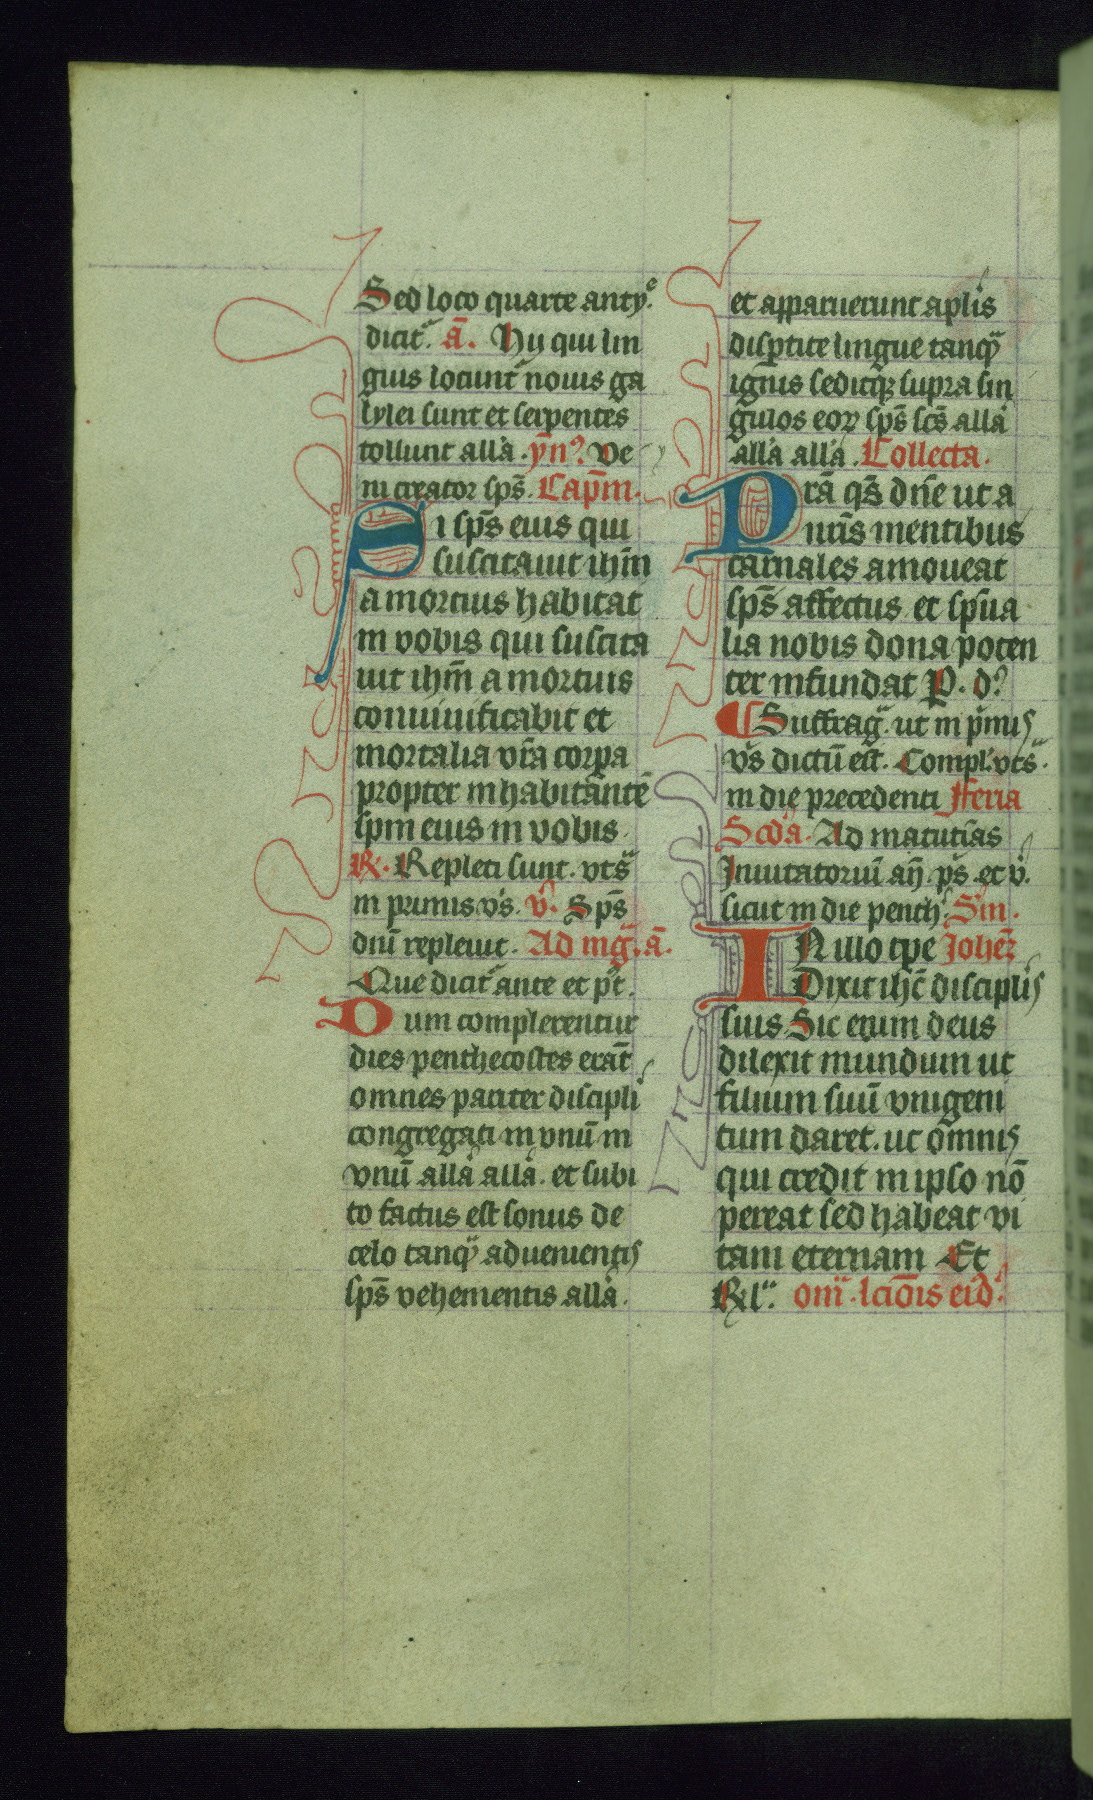 Sed loco quarte antyᵉ
dicit᷑. ā. Hii qui lin
guis locunt᷑ nouis ga
lylei sunt et serpentes
tollunt alla. yn̄ˀ. Ve
ni creator sp̄s. Cap̄m.
Si sp̄s eius qui
suscitauit ihm̄
a mortuis habitat
in vobis qui suscita
uit ihm̄ a mortuis
conuiuificabit et
mortalia vr̄a corpa
propter inhabitantē
spm eius in vobis.
R. Repleti sunt. vts᷑
in primis vs̓. v̓. Sp̄s
dnī repleuit. Ad mḡ. ā.
Que dicit᷑ ante et pt᷑.
Dum complerentur
dies penthecostes erāt
omnes pariter discipli
congregati in vnū in
vnū alla alla. et subi
to factus est sonus de
celo tanq̄ aduenientis
sp̄s vehementis alla.
et apparuerunt aplis
dispertite lingue tanq̄
ignis seditqꝫ supra sin
gulos eoꝝ sp̄s sc̄s alla
alla alla. Collecta.
Prā qs̄ dn̄e ut a
nr̄is mentibus
carnales amoueat
sp̄s affectus et spūa
lia nobis dona poten
ter infundat P. d.ˀ
Suffrag᷑. ut in pˈmis
vs̓ dictū est. Compl᷑. vts᷑.
in die precedenti Fferia
Scd̄a. Ad matutīas
Inuitatoriū an̄. ps̄. et v̓.
sicut in die penth̓. Sin̓.
IN illo tpe Joheꝫ
Dixit ihc̄ disciplis
suis Sic enim deus
dilexit mundum ut
filium suū vnigeni
tum daret. ut omnis
qui credit in ipso nō
pereat sed habeat vi
tam eternam Et
Rl᷑. om᷑. lcīonis eid̓.